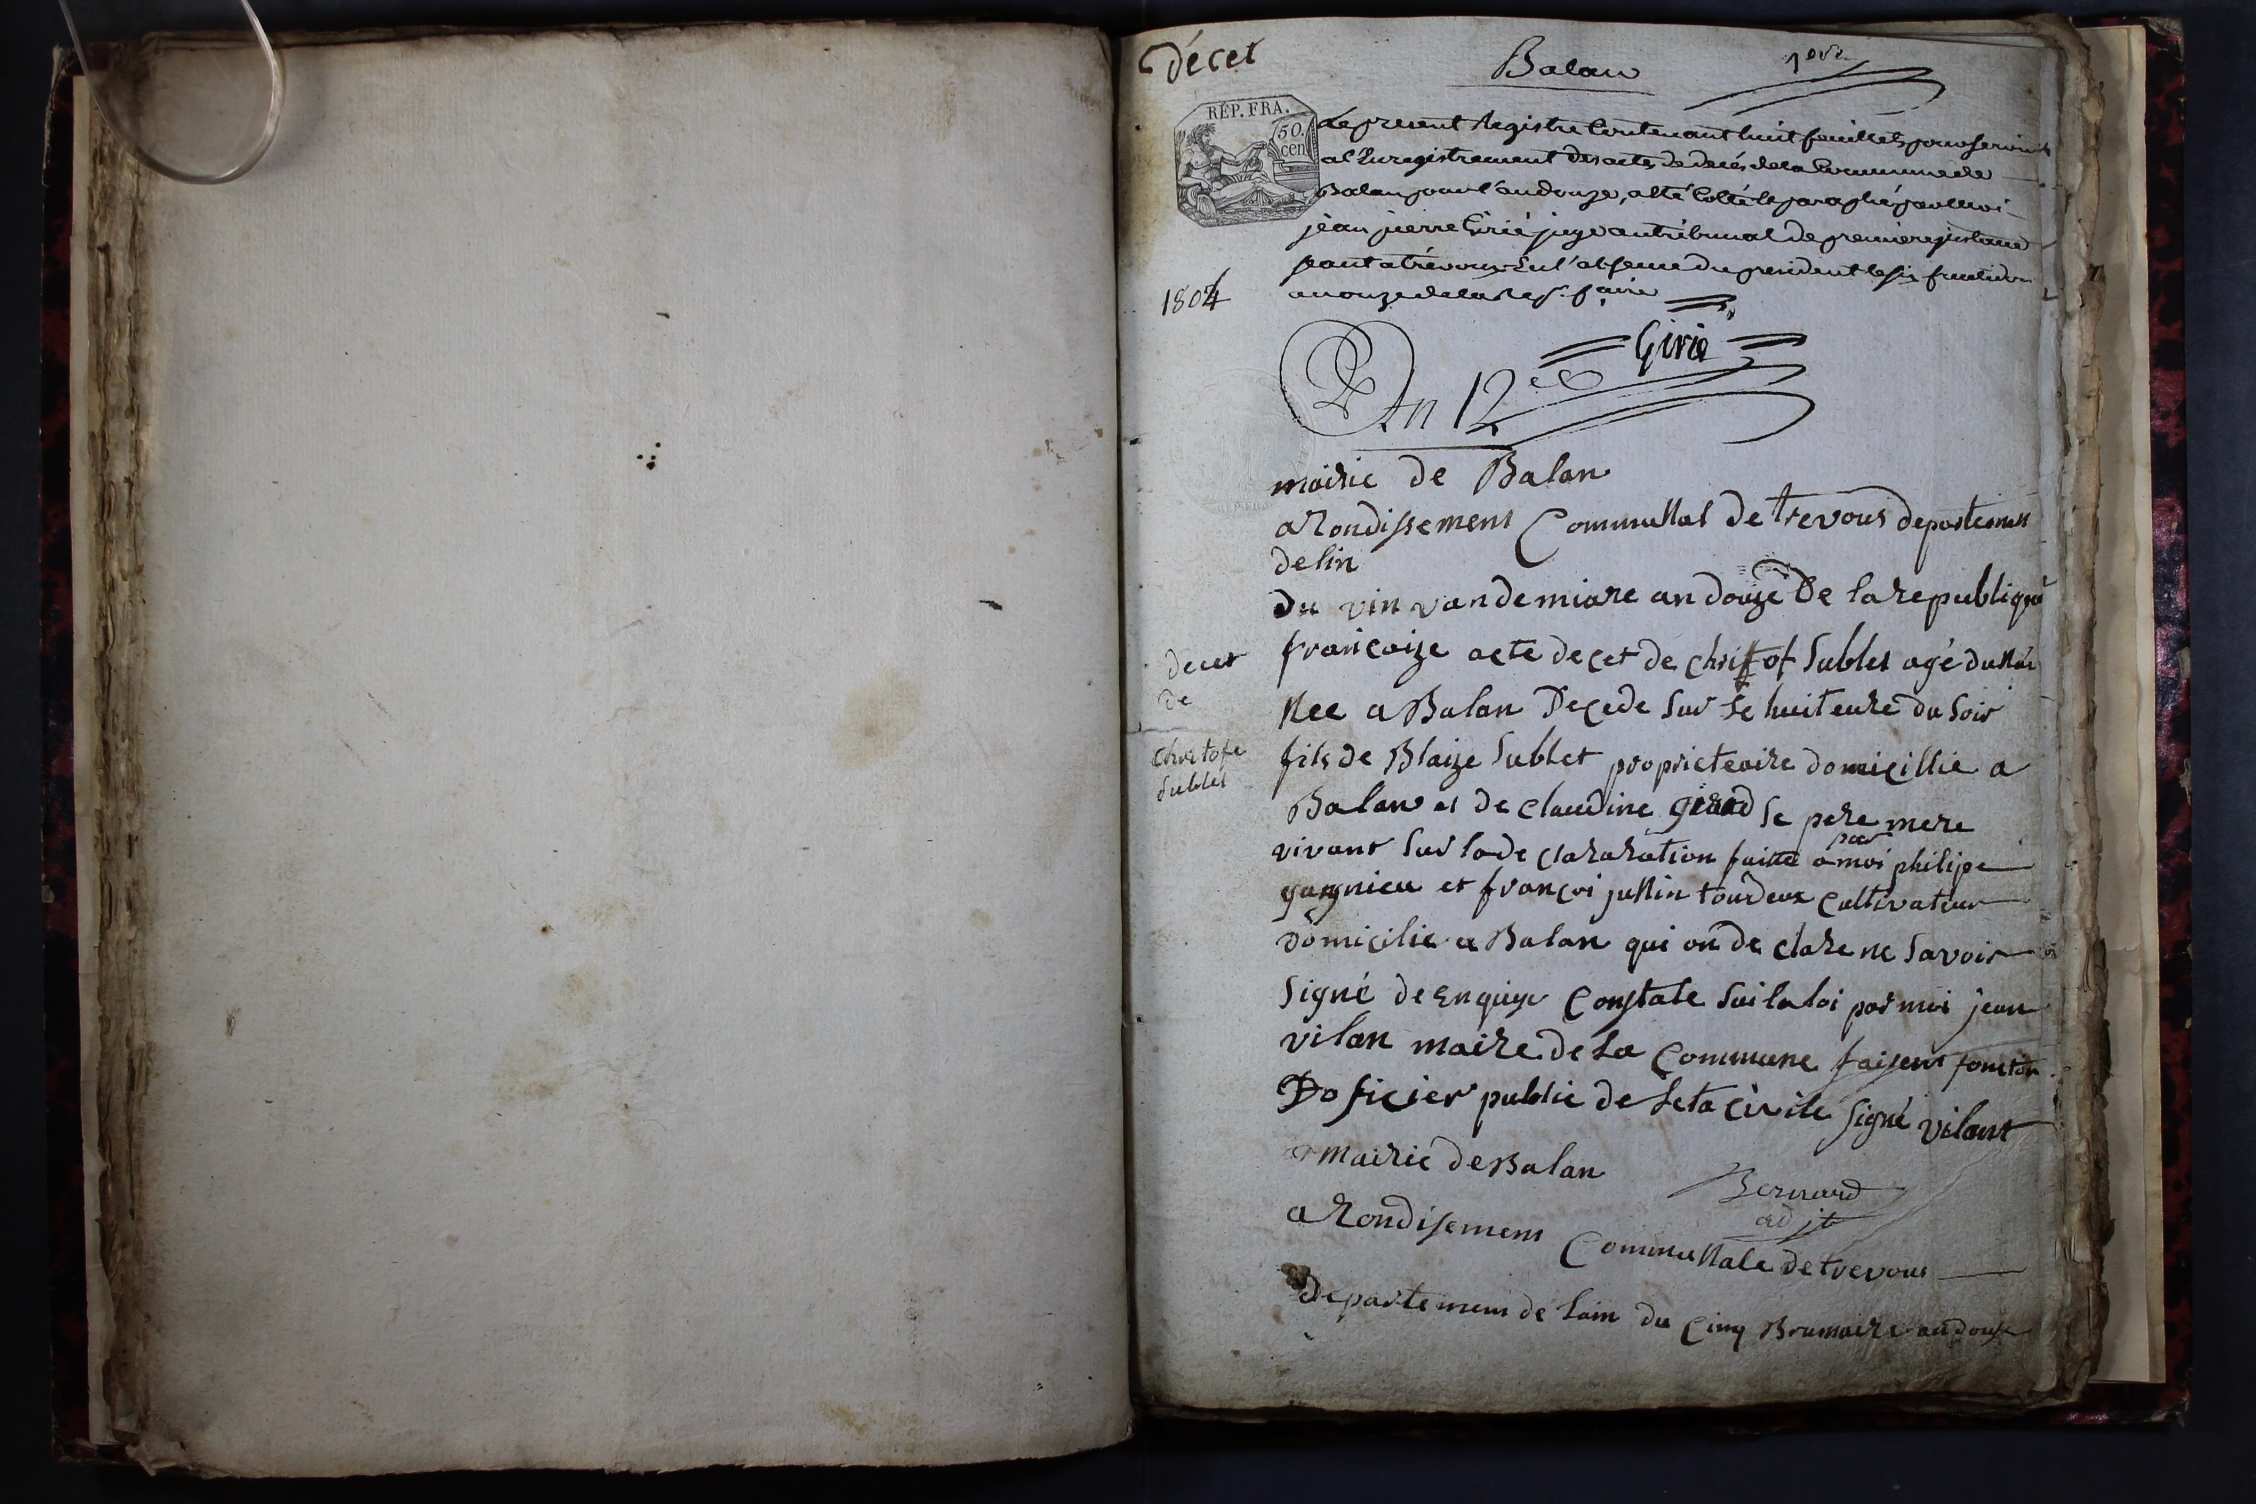 Décet
Balan
1er
RÉP. FRA.
50.
cen
Le present Registre Contenant huit feuillets pour servir
a l'Enregistrement des actes de decés de la Commune de
Balan pour l'an douze, a été Cotté et paraphé par Moi
jean pierre Girié juge au tribunal de premiere instance
seant a trévoux En l'absence du president le six fructidor
an onze de la Rep. faire
1804
Girié
An 12
mairie de Balan
arondissement Communal de trevous departement
de lin
du vin vandemiare an douze De la republique
françaize acte decet de christof Sublet agé dunan
Nee a Balan Decede sur le huit eure du soir
fils de Blaize Sublet proprieteaire domicillie a
Balan et de claudine girard se pere mere
vivant sur la de clararation faitte a moi par philipe
gagnieu et françoi junin tourdeux cultivateur
domicilie a Balan qui on de clare ne savoir
signé de enquije Constate sui la loi par moi jean
vilan maire de la Commune faisent fonction
Doficier public de leta civile signé vilant
decet
de
christofe
Sublet
mairie de Balan
Bernard
adjt
arondisement Communale de trevous
departement de lain du cinq Brumaire an douse